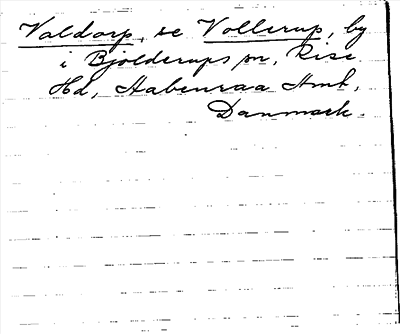 Valdorp, se Vollerup, by
i Bjolderups sn, Rise
Hd, Aabenraa Amt,
Danmark.